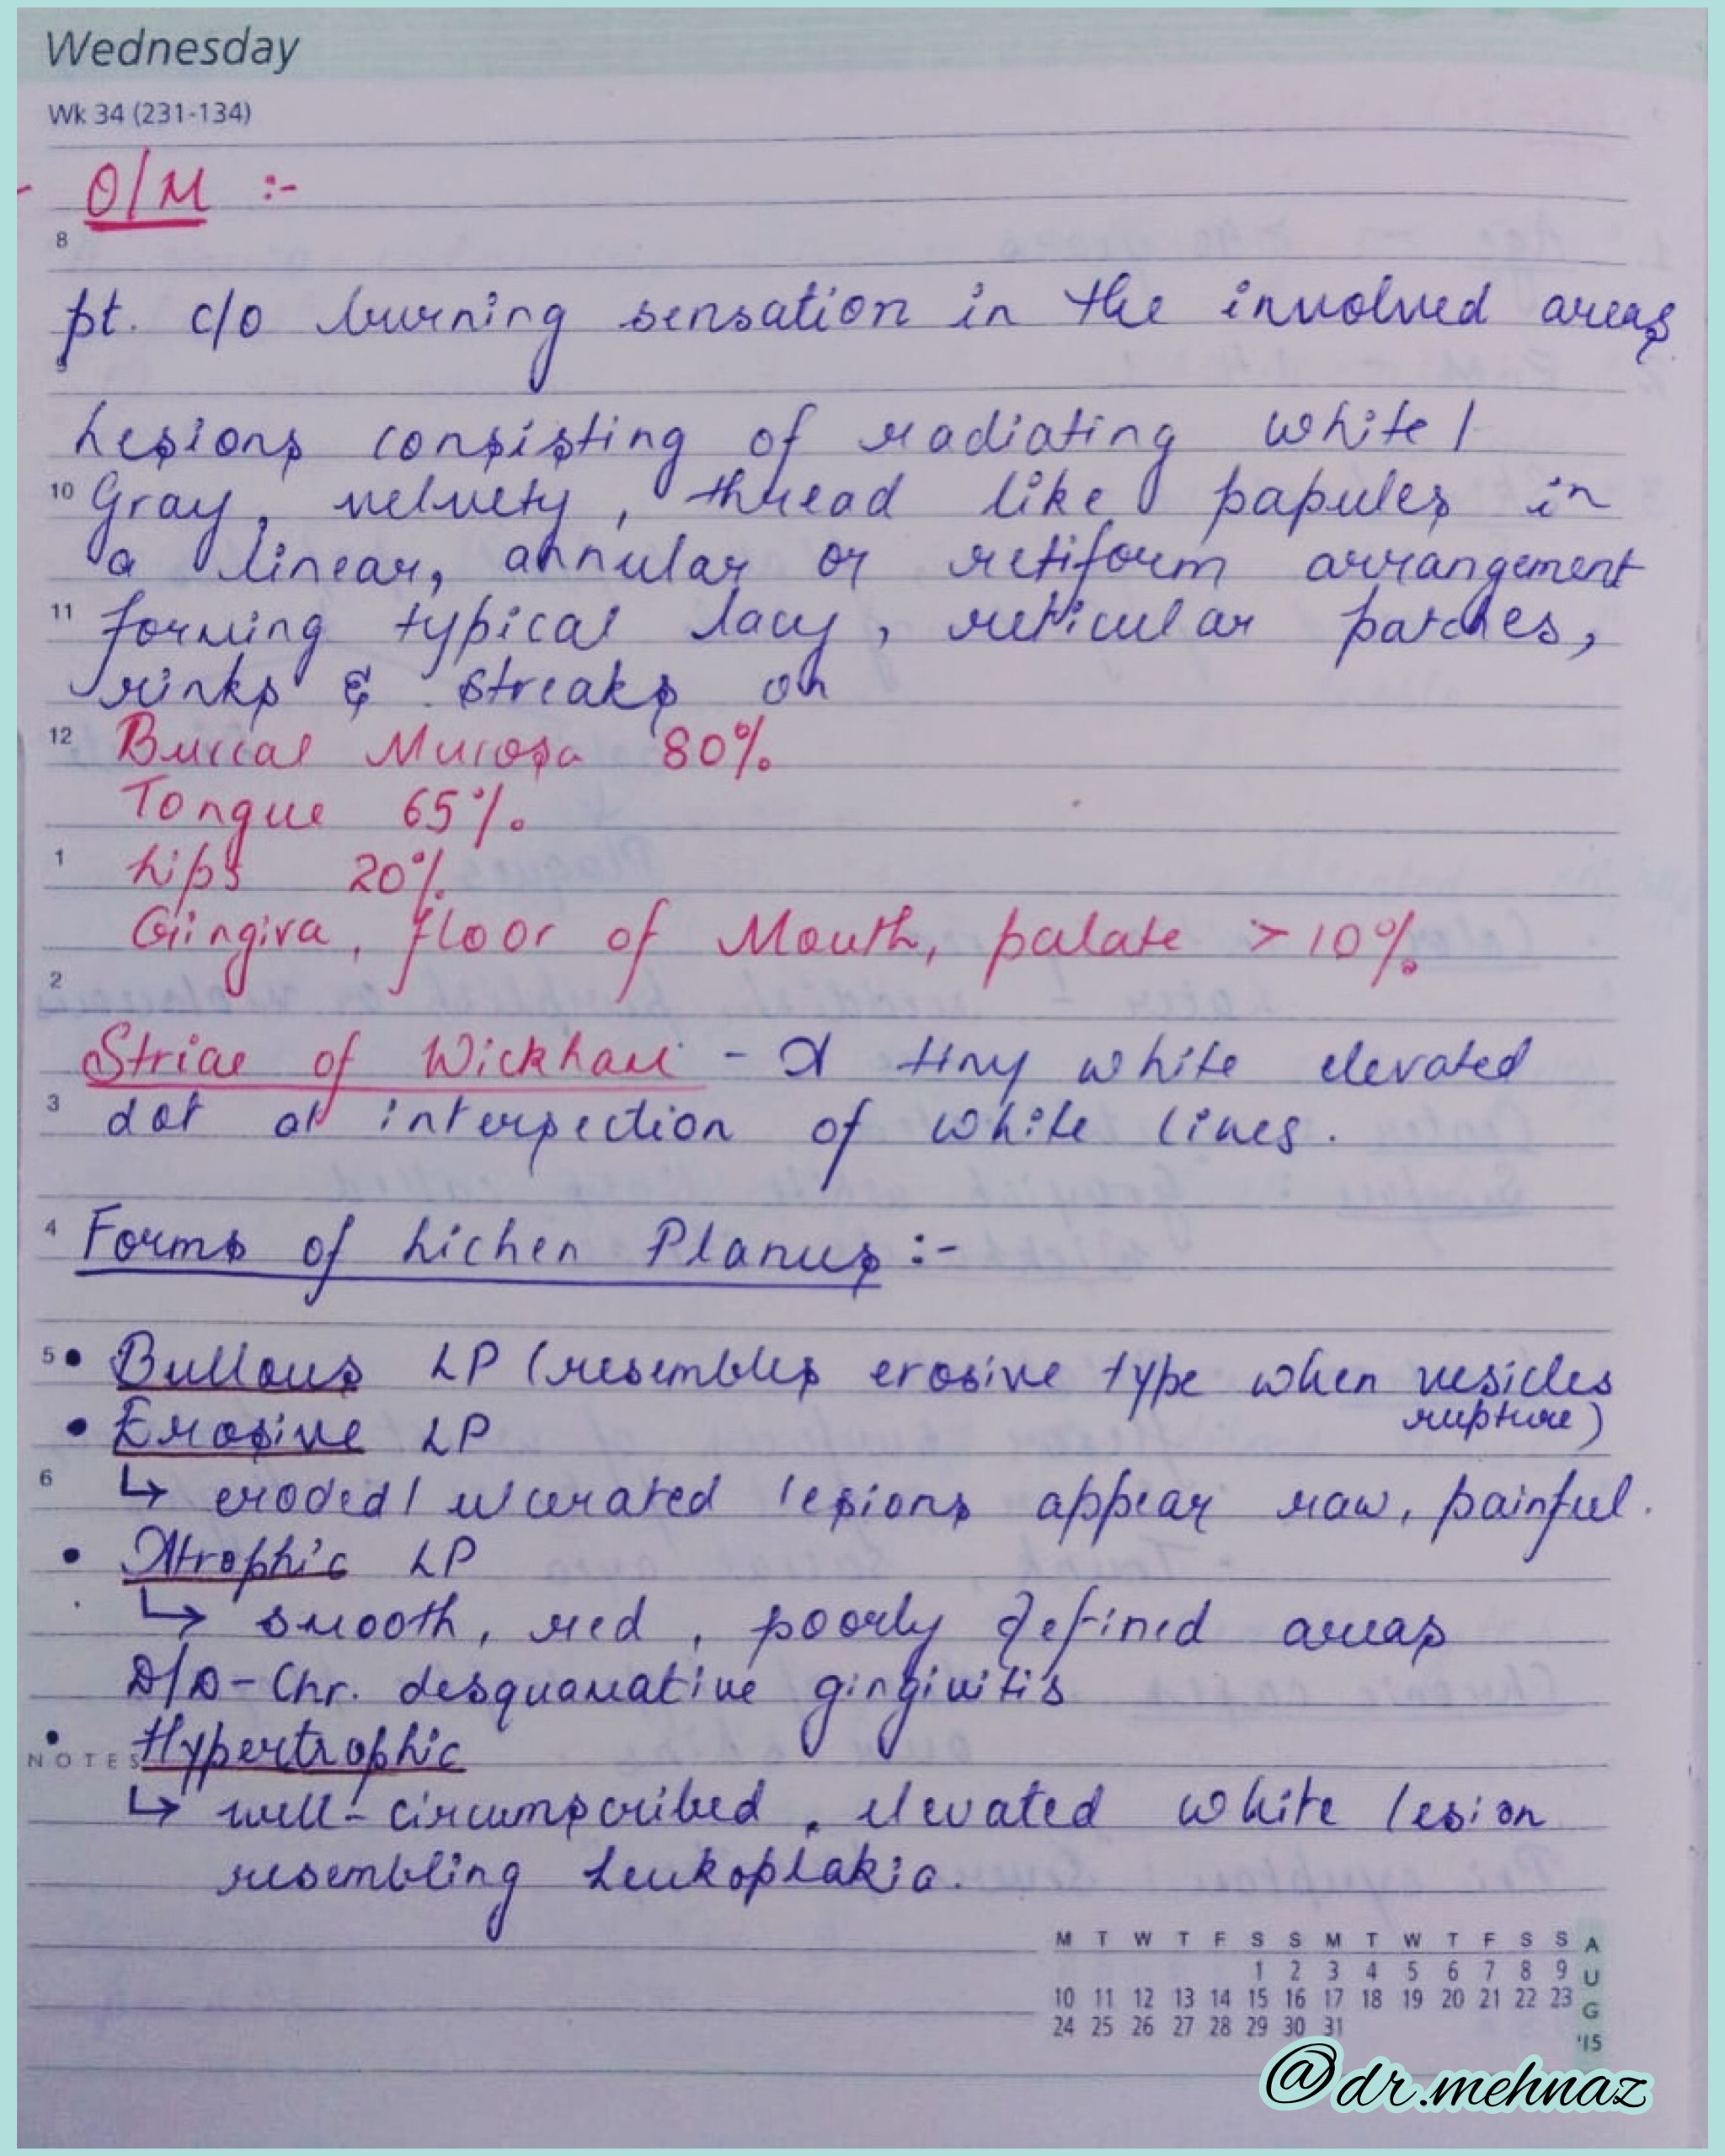 Wednesday
Wk 34 (231-134)
O/M :-
8
pt. c/o burning sensation in the involved areas
9
Lesions consisting of radiating white/
10 Gray, velvety, thread like papules in
a linear, annular or retiform arrangement
11 forming typical lacy, reticular patches,
rinks & streaks on
12 Buccal Mucosa 80%
Tongue 65%
1 Lips 20%
Gingiva, floor of Mouth, palate > 10%
2
Striae of Wickham - A tiny white elevated
3 dot at intersection of white lines.
4 Forms of Lichen Planus :-
5 • Bullous LP (resembles erosive type when vesicles
rupture)
• Erosive LP
6 ↳ eroded/ ulcerated lesions appear raw, painful.
• Atrophic LP
↳ smooth, red, poorly defined areas
D/D - Chr. desquamative gingivitis
NOTES • Hypertrophic
↳ well-circumscribed, elevated white lesion
resembling Leukoplakia.
M T W T F S S M T W T F S S
1 2 3 4 5 6 7 8 9
10 11 12 13 14 15 16 17 18 19 20 21 22 23
24 25 26 27 28 29 30 31
AUG '15
@dr.mehnaz